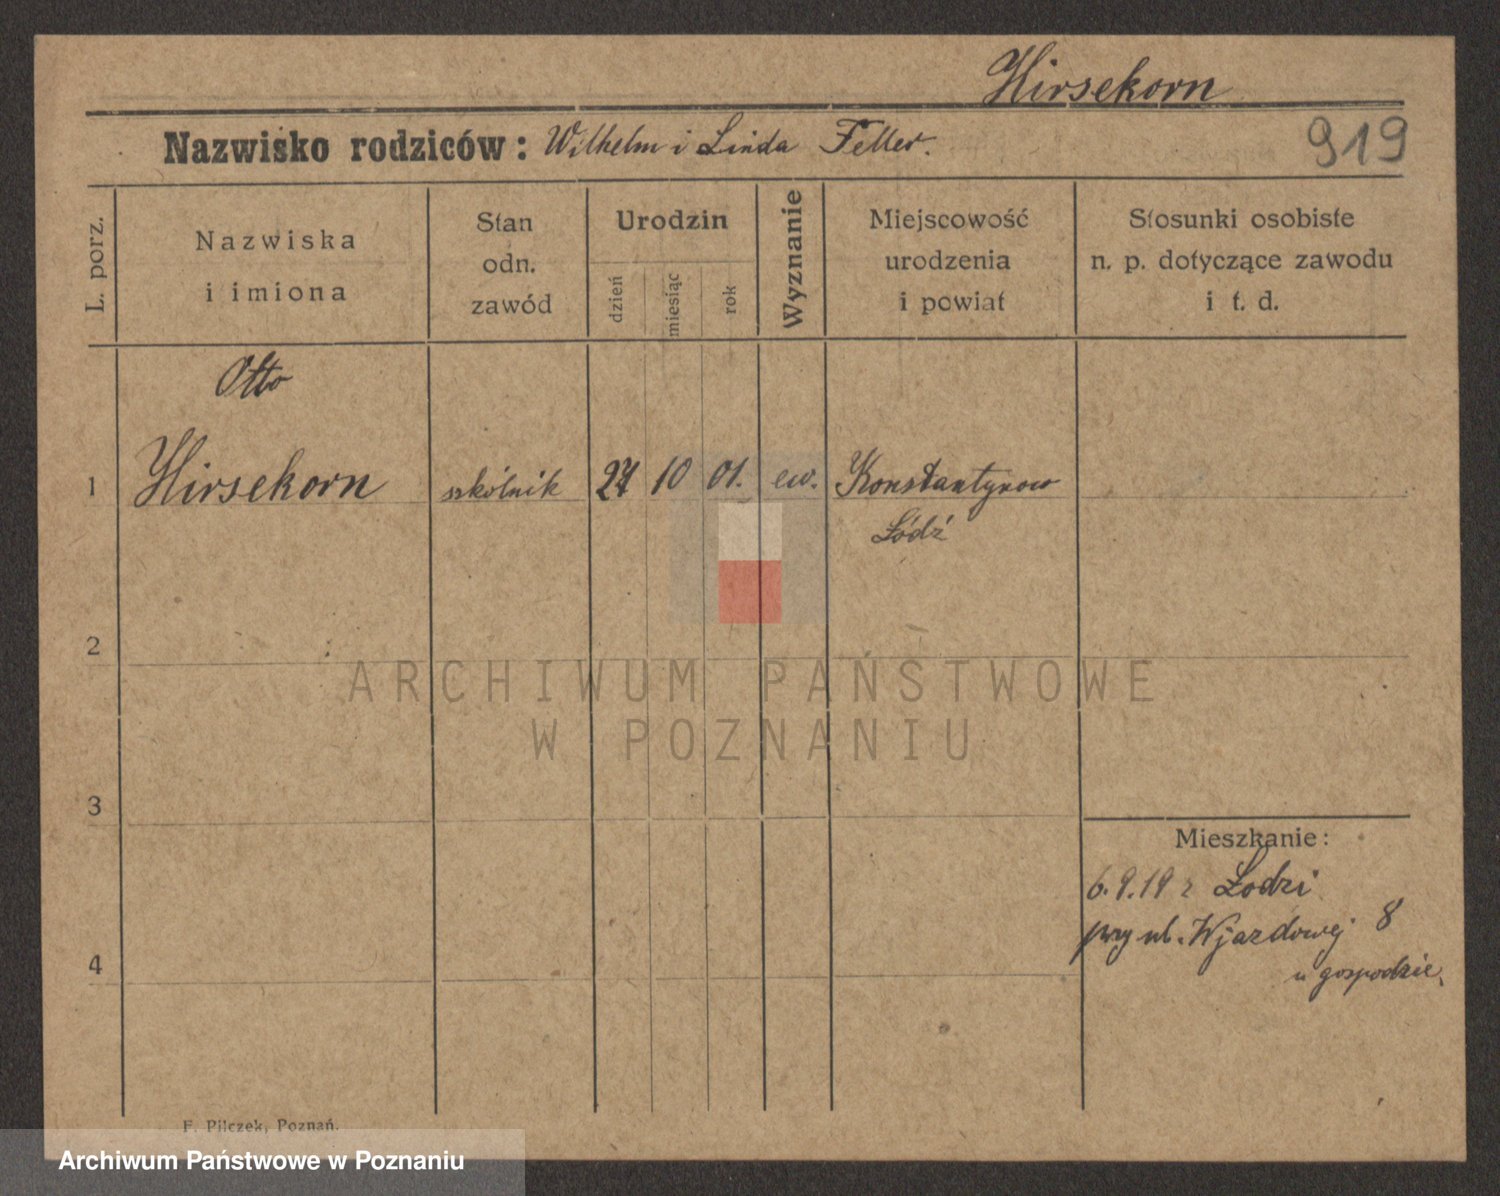 Hirsekorn
Nazwisko rodziców: Wilhelm i Linda Feller.
919
L. porz.
Nazwiska
i imiona
Stan
odn.
zawód
Urodzin
dzień
miesiąc
rok
Wyznanie
Miejscowość
urodzenia
i powiat
Stosunki osobiste
n. p. dotyczące zawodu
i t. d.
Otto
1 Hirsekorn szkólnik 10 01. ew. Konstantynow
Łódź
2
ARCHIWUM PAŃSTWOWE
W POZNANIU
3
Mieszkanie:
6.9.19 z Łodzi
przy ul. Wjazdowej 8
4
u gospodzie
F. Pilczek, Poznań.
Archiwum Państwowe w Poznaniu